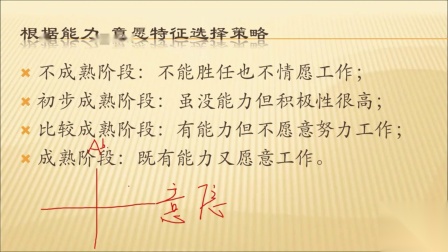 根据能力 意愿特征选择策略
不成熟阶段：不能胜任也不情愿工作；
初步成熟阶段：虽没能力但积极性很高；
比较成熟阶段：有能力但不愿意努力工作；
成熟阶段：既有能力又愿意工作。
意愿